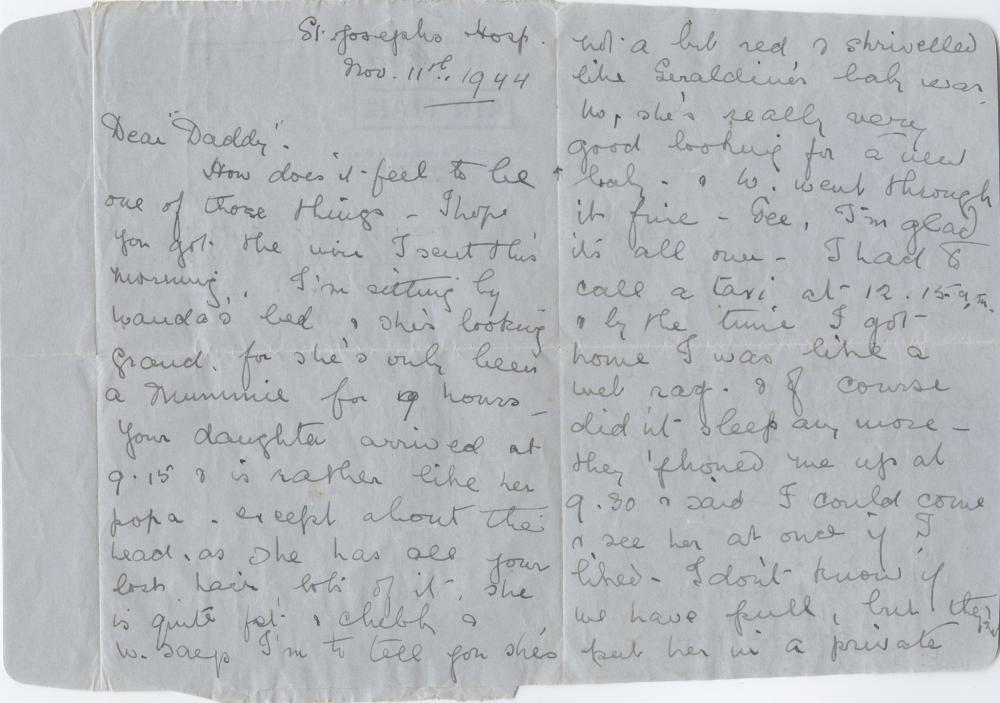 St. Josephs Hosp.
Nov. 11th, 1944
Dear "Daddy".
How does it feel to be
one of those things - I hope
you got the wire I sent this
morning,. I'm sitting by
Wanda's bed & she's looking
grand. for she's only been
a Mummie for 9 hours -
Your daughter arrived at
9.15 & is rather like her
popa - except about the
head. as she has all your
lost hair, lots of it, she
is quite fat & chubby &
W. says I'm to tell you she's
not a bit red & shrivelled
like Geraldine's baby was.
No, she's really very
good looking for a new
baby - & W. went through
it fine - Gee, I'm glad
it's all over - I had to
call a taxi at 12.15 a.m.
& by the time I got
home I was like a
wet rag. & of course
didn't sleep any more -
they 'phoned me up at
9.30 & said I could come
& see her at once if I
liked - I don't know if
we have pull, but they
put her in a private